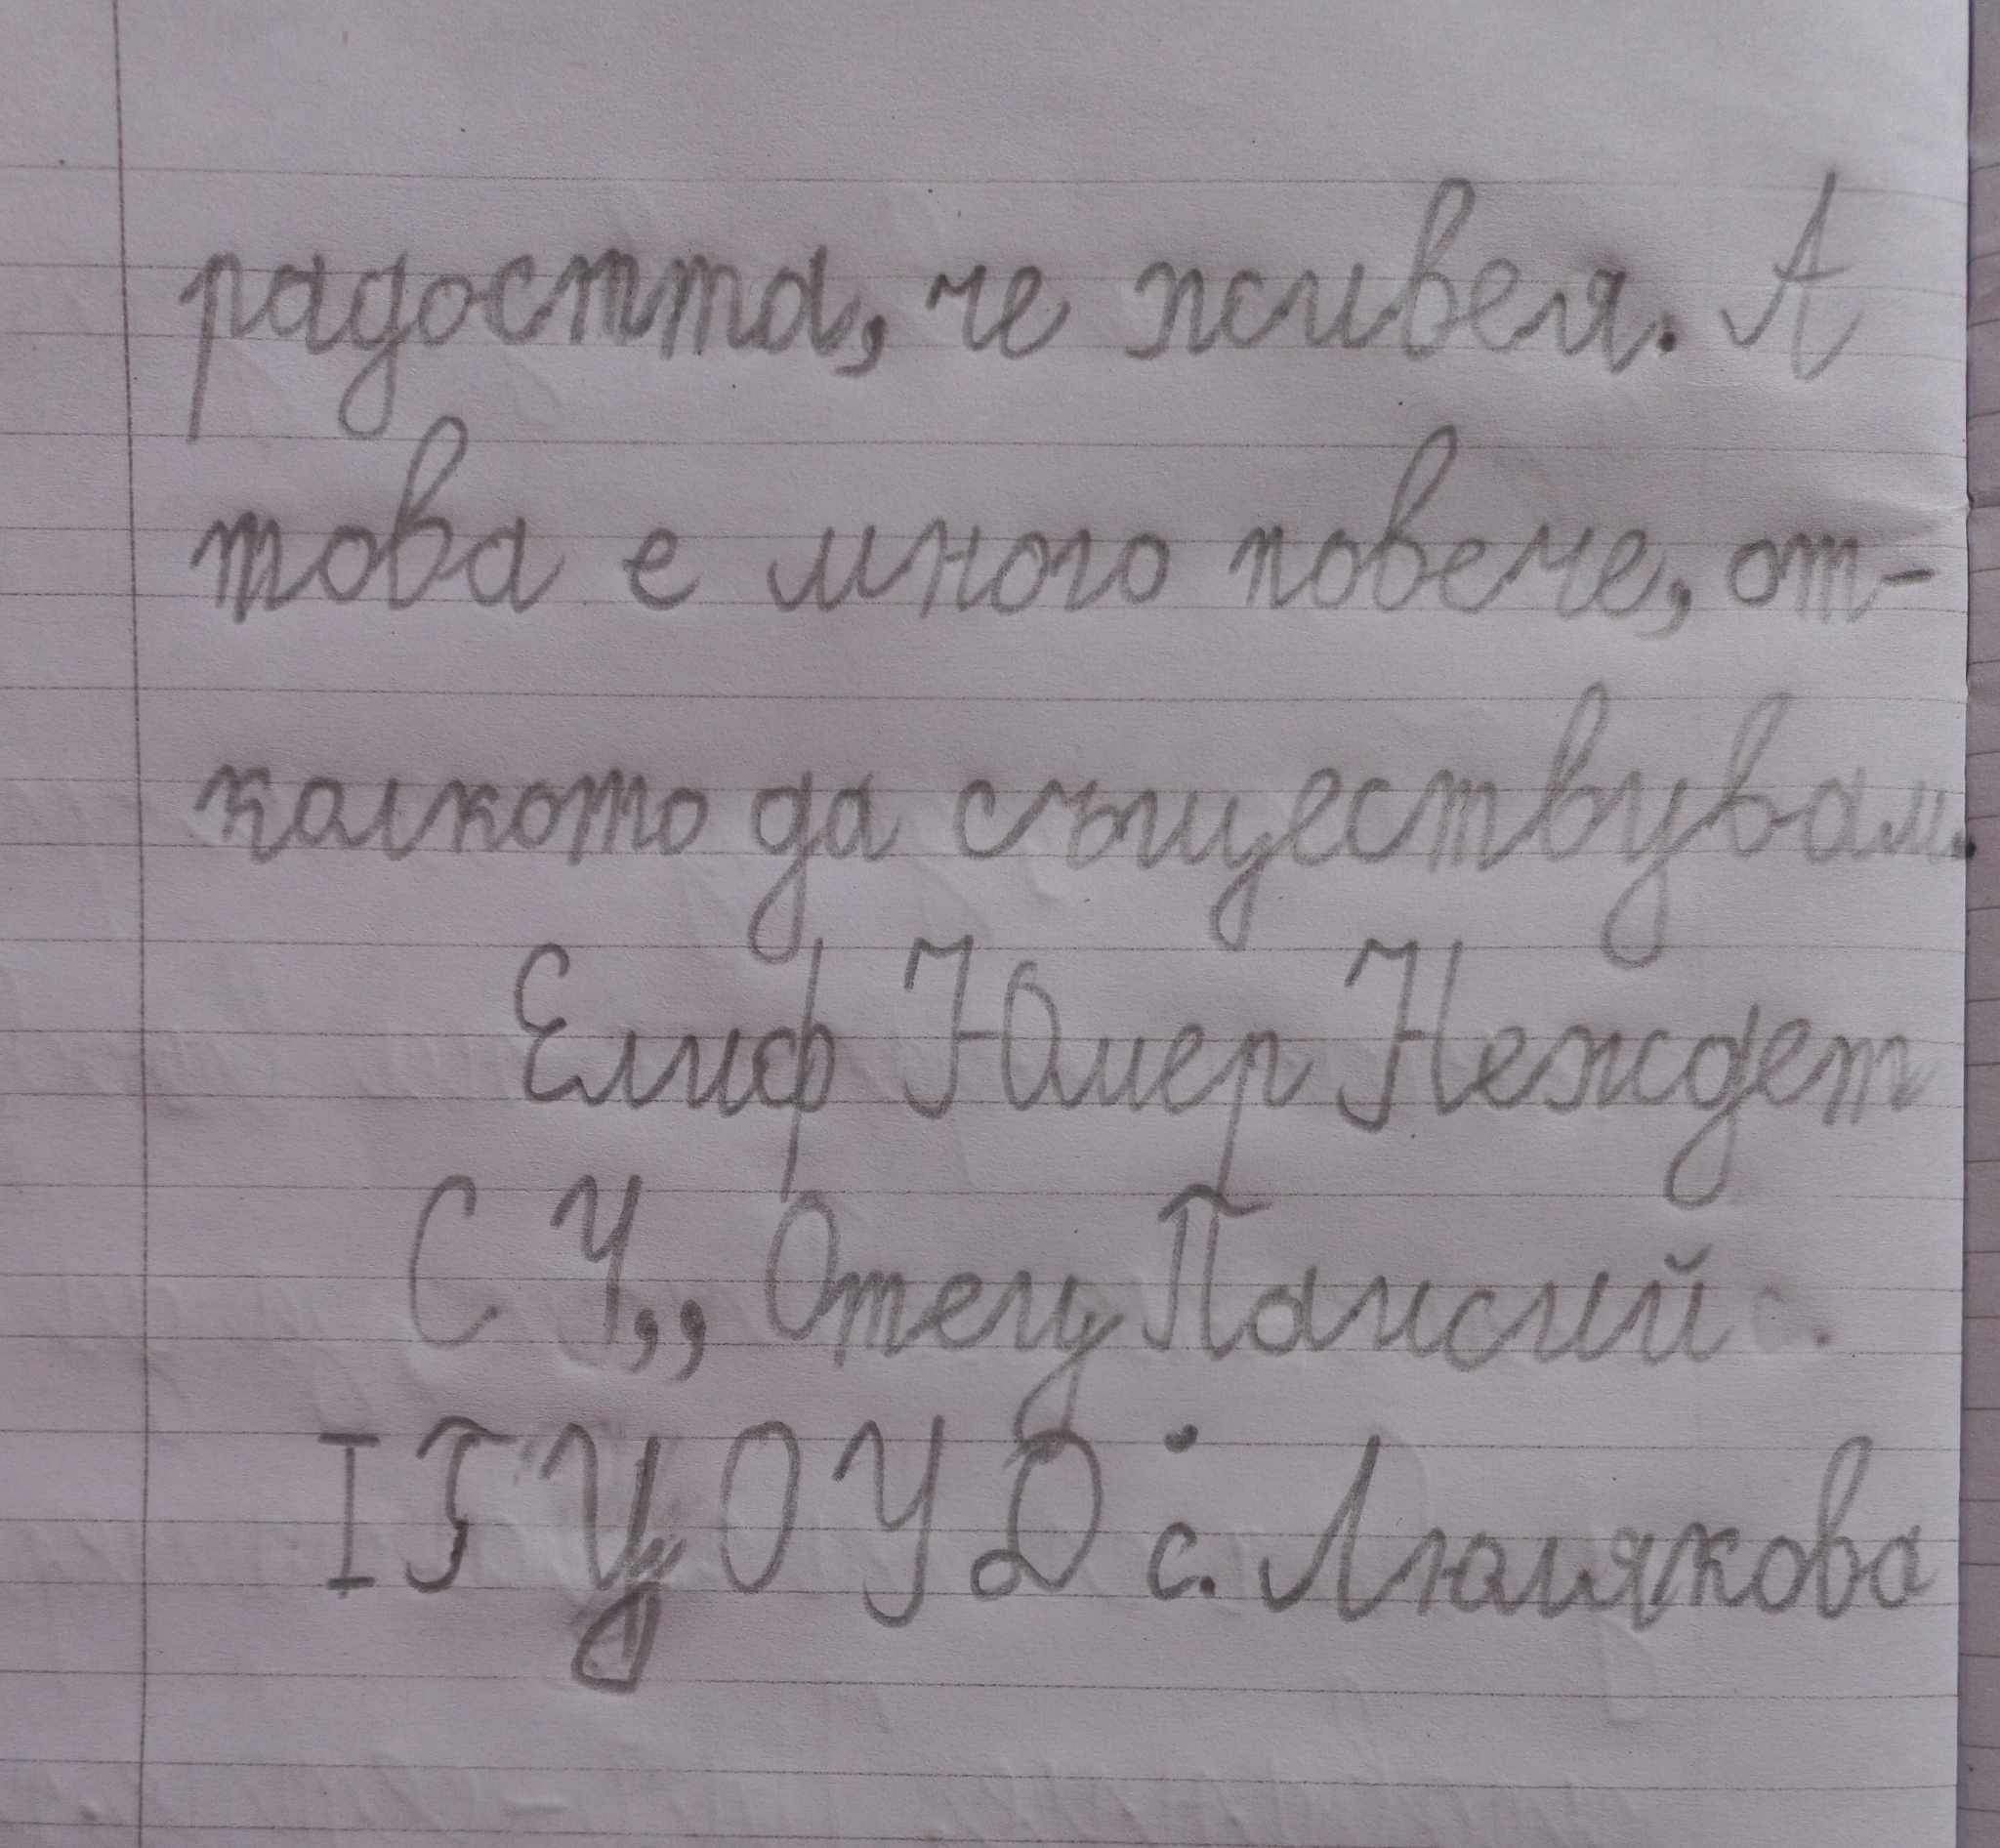 радостта, че живея. А
това е много повече, от-
колкото да съществувам.
Елиф Юмер Неждет
С У,, Отец Паисий
I Г ЦОУД с. Люляково